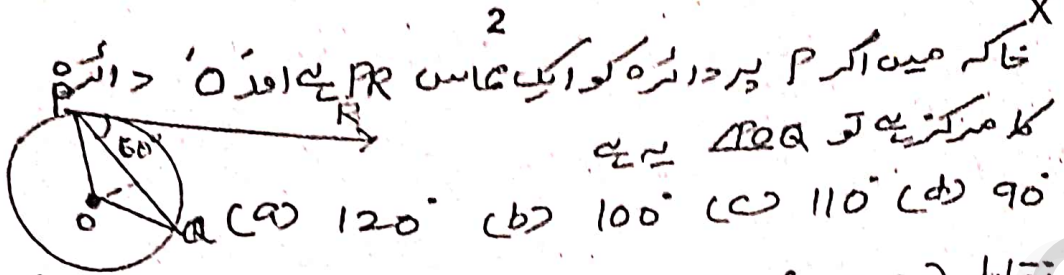 2
X
خاکہ میں اگر P پر دائرہ کو ایک مماس PR ہے اور 'O' دائرہ
کا مرکز ہے تو ∠POQ یہ ہے
P
R
O
Q
(a) 120° (b) 100° (c) 110° (d) 90°